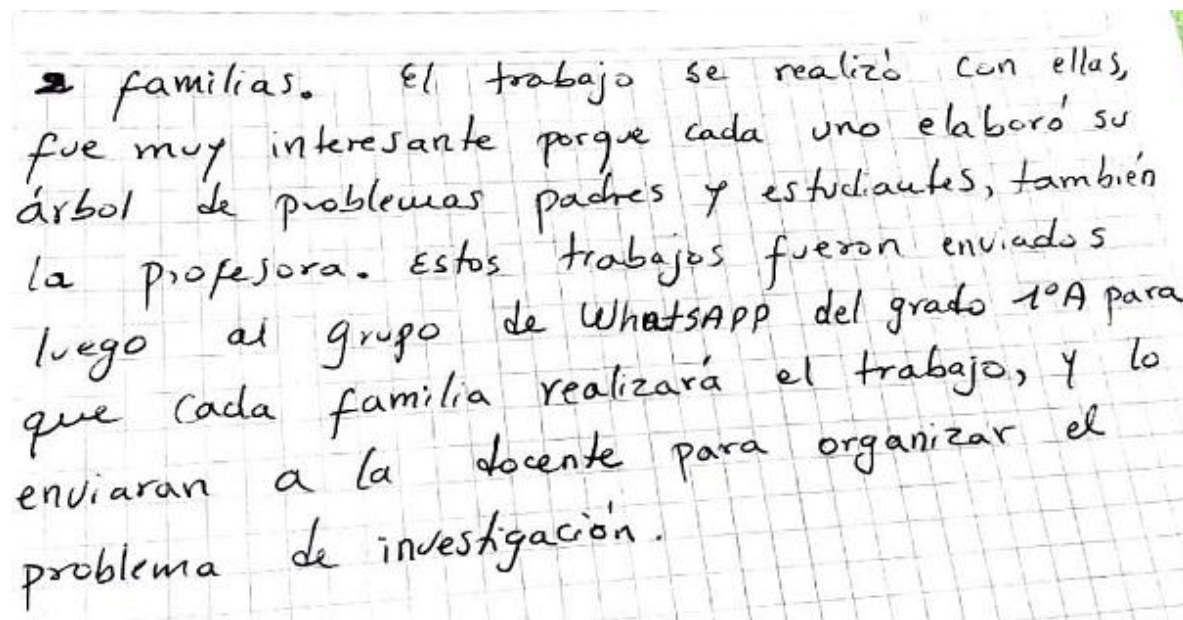 2 familias. El trabajo se realizó con ellas,
fue muy interesante porque cada uno elaboró su
árbol de problemas padres y estudiantes, también
la profesora. Estos trabajos fueron enviados
luego al grupo de WhatsAPP del grado 1ºA para
que cada familia realizará el trabajo, y lo
enviaran a la docente para organizar el
problema de investigación.